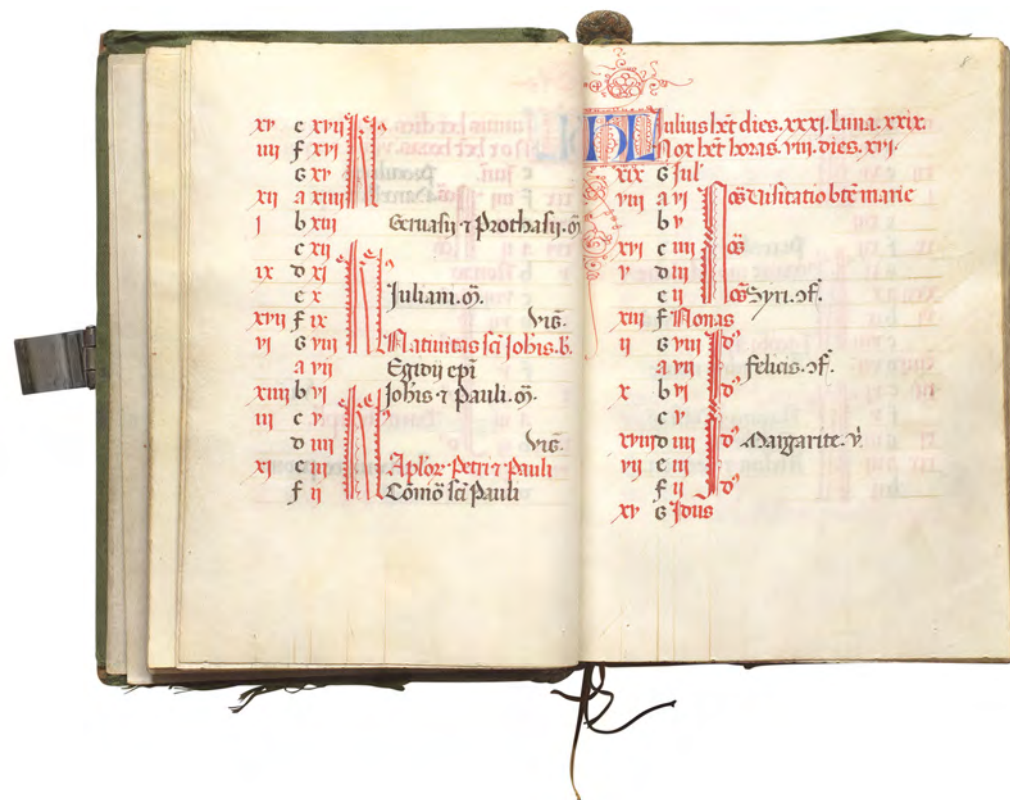 xv e xvii
iiii f xvi
G xv
xii a xiiii
j b xiii Geruasij ⁊ Prothasij. m̄
c xii
ix d xi
e x Juliani. m̄.
xvii f ix Vig̅.
vi G viii Natiuitas sc̄i Joh̄is. b.
a vii Egidij ep̄i
xiiii b vi Joh̄is ⁊ Pauli. m̄.
iii c v
d iiii Vig̅.
xj e iii Ap̄lor̄ Petri ⁊ Pauli
f ii Com̄o sc̄i Pauli
KL Julius h̄et dies. xxxj. Luna. xxix.
Nox h̄et horas. viii. dies. xvi.
xix G Jul'
viii a vj Visitatio bt̄e marie
b v
xvi c iiii
v d iii
e ii Syri. ↄf.
xiii f Nonas
ii G viii
a vii felicis. ↄf.
x b vi
c v
xviii d iiii Margarite. v̄
vii e iii
f ii
xv G Jdus
8